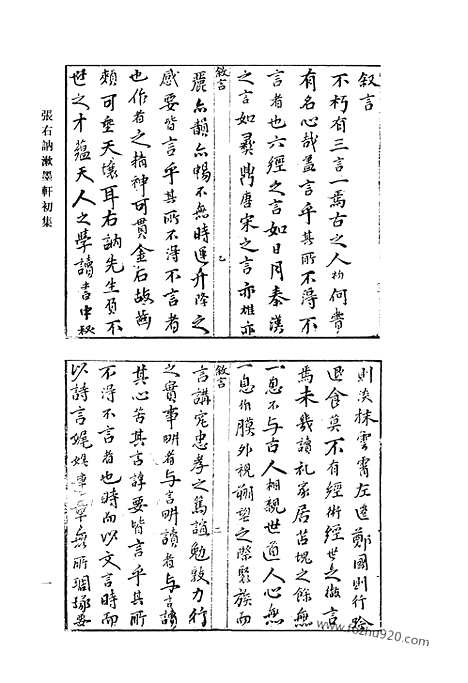 叙言
不朽有三言一焉古之人亦何貴
有名心哉蓋言乎其所不得不
言者也六經之言如日月秦漢
之言如彞鼎唐宋之言亦雄亦
叙言
麗亦韻亦暢不無時運升降之
感要皆言乎其所不得不言者
也作者之精神可貫金石故齒
頰可垂天壤耳右訥先生負不
世之才蘊天人之學讀書中秘
則淡抹雲霄左遷鄭國則行
退食莫不有經術經世之微言
焉未幾讀礼家居苫塊之餘無
一息不与古人相親世道人心無
一息作膜外視朔望之際聚族而
叙言
二
言講究忠孝之篤誼勉敦力行
之實事耕者与言耕讀者与言讀
其心苦其言諄要皆言乎其所
不得不言者也時而以文言時而
以詩言娓娓無所琱琢要
張右訥漱墨軒初集
一
www.fozhu920.com